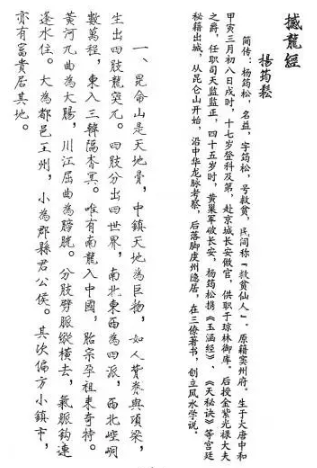 撼龍經
楊筠鬆
简传：杨筠松，名益，字筠松，号救贫，民间称“救贫仙人”。原籍窦州府。生于大唐中和
甲寅三月初八日戌时，十七岁登科及第，赴京城长安做官，供职于琼林御库。后授金紫光禄大夫
之爵，任职司天监监正，四十五岁时，黄巢军破长安，杨筠松携《玉涵经》、《天秘诀》等宫廷
秘籍出城，从昆仑山开始，沿中华龙脉考察，后落脚虔州隐居，在三僚著书，创立风水学说。
一、昆侖山是天地骨，中鎮天地為巨物，如人背脊與項梁，
生出四肢龍突兀。四肢分出四世界，南北東西為四派，西北崆峒
數萬程，東入三韓隔杳冥。唯有南龍入中國，胎宗孕祖來奇特。
黃河九曲為大腸，川江屈曲為膀胱。分肢劈脈縱橫去，氣脈鈎連
逢水住。大為都邑王州，小為郡縣君公侯。其次偏方小鎮市，
亦有富貴居其地。